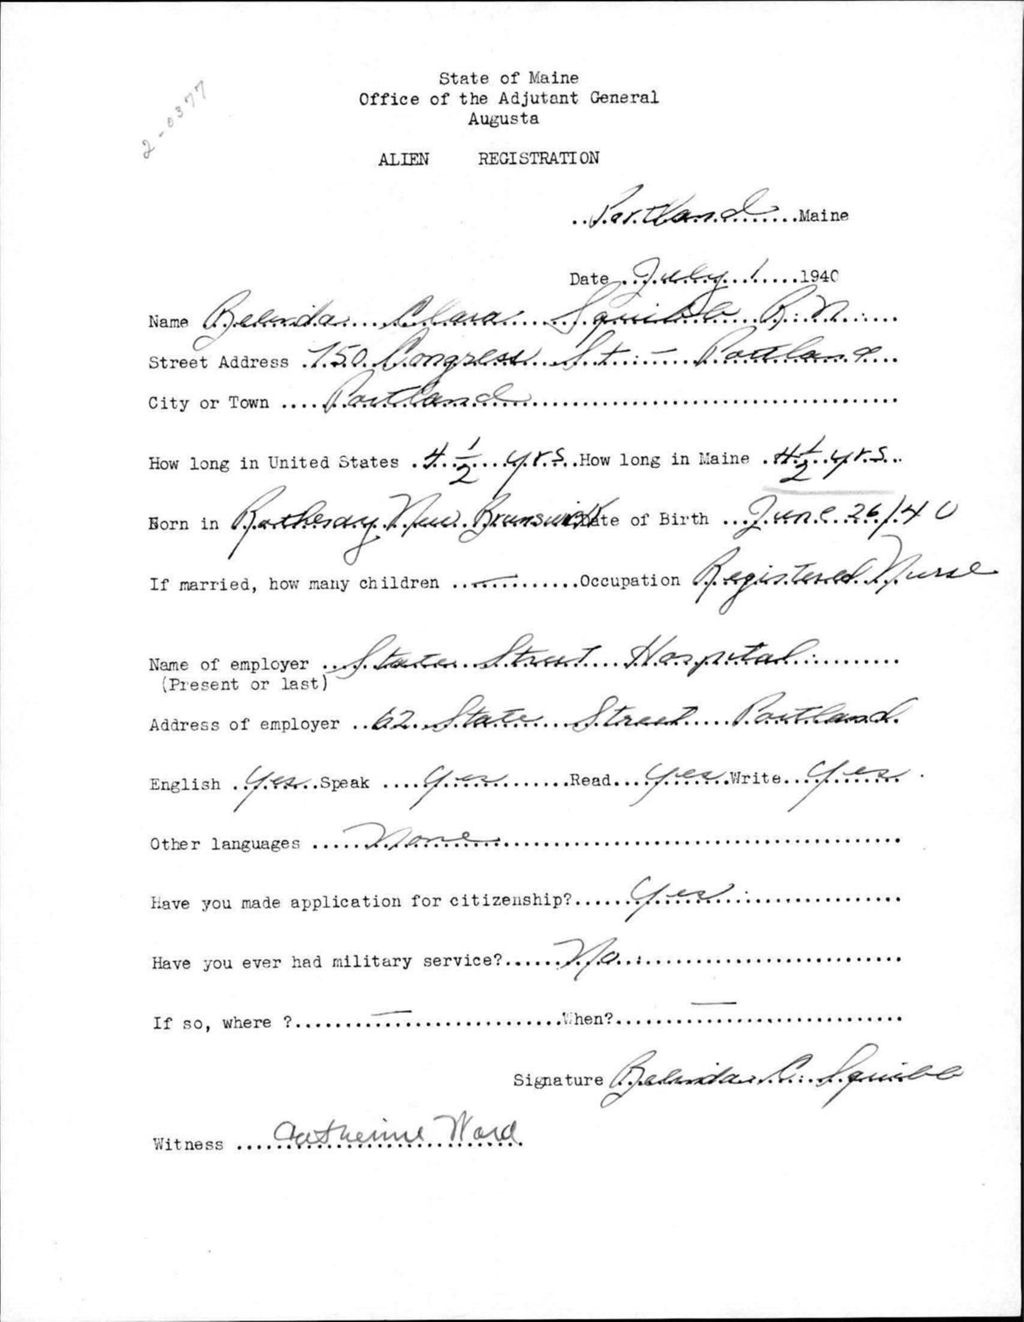 2-0377
State of Maine
Office of the Adjutant General
Augusta
ALIEN REGISTRATION
Portland Maine
Date July 1 1940
Name Belinda Clara Squibb R.N.
Street Address 750 Congress St. - Portland
City or Town Portland
How long in United States 4 1/2 yrs. How long in Maine 4 1/2 yrs.
Born in Rothesay New Brunswick Date of Birth June 26/40
If married, how many children — Occupation Registered Nurse
Name of employer State Street Hospital
(Present or last)
Address of employer 62 State Street Portland
English Yes Speak Yes Read Yes Write Yes
Other languages None
Have you made application for citizenship? Yes
Have you ever had military service? No
If so, where ? — When? —
Signature Belinda C. Squibb
Witness Catherine Ward